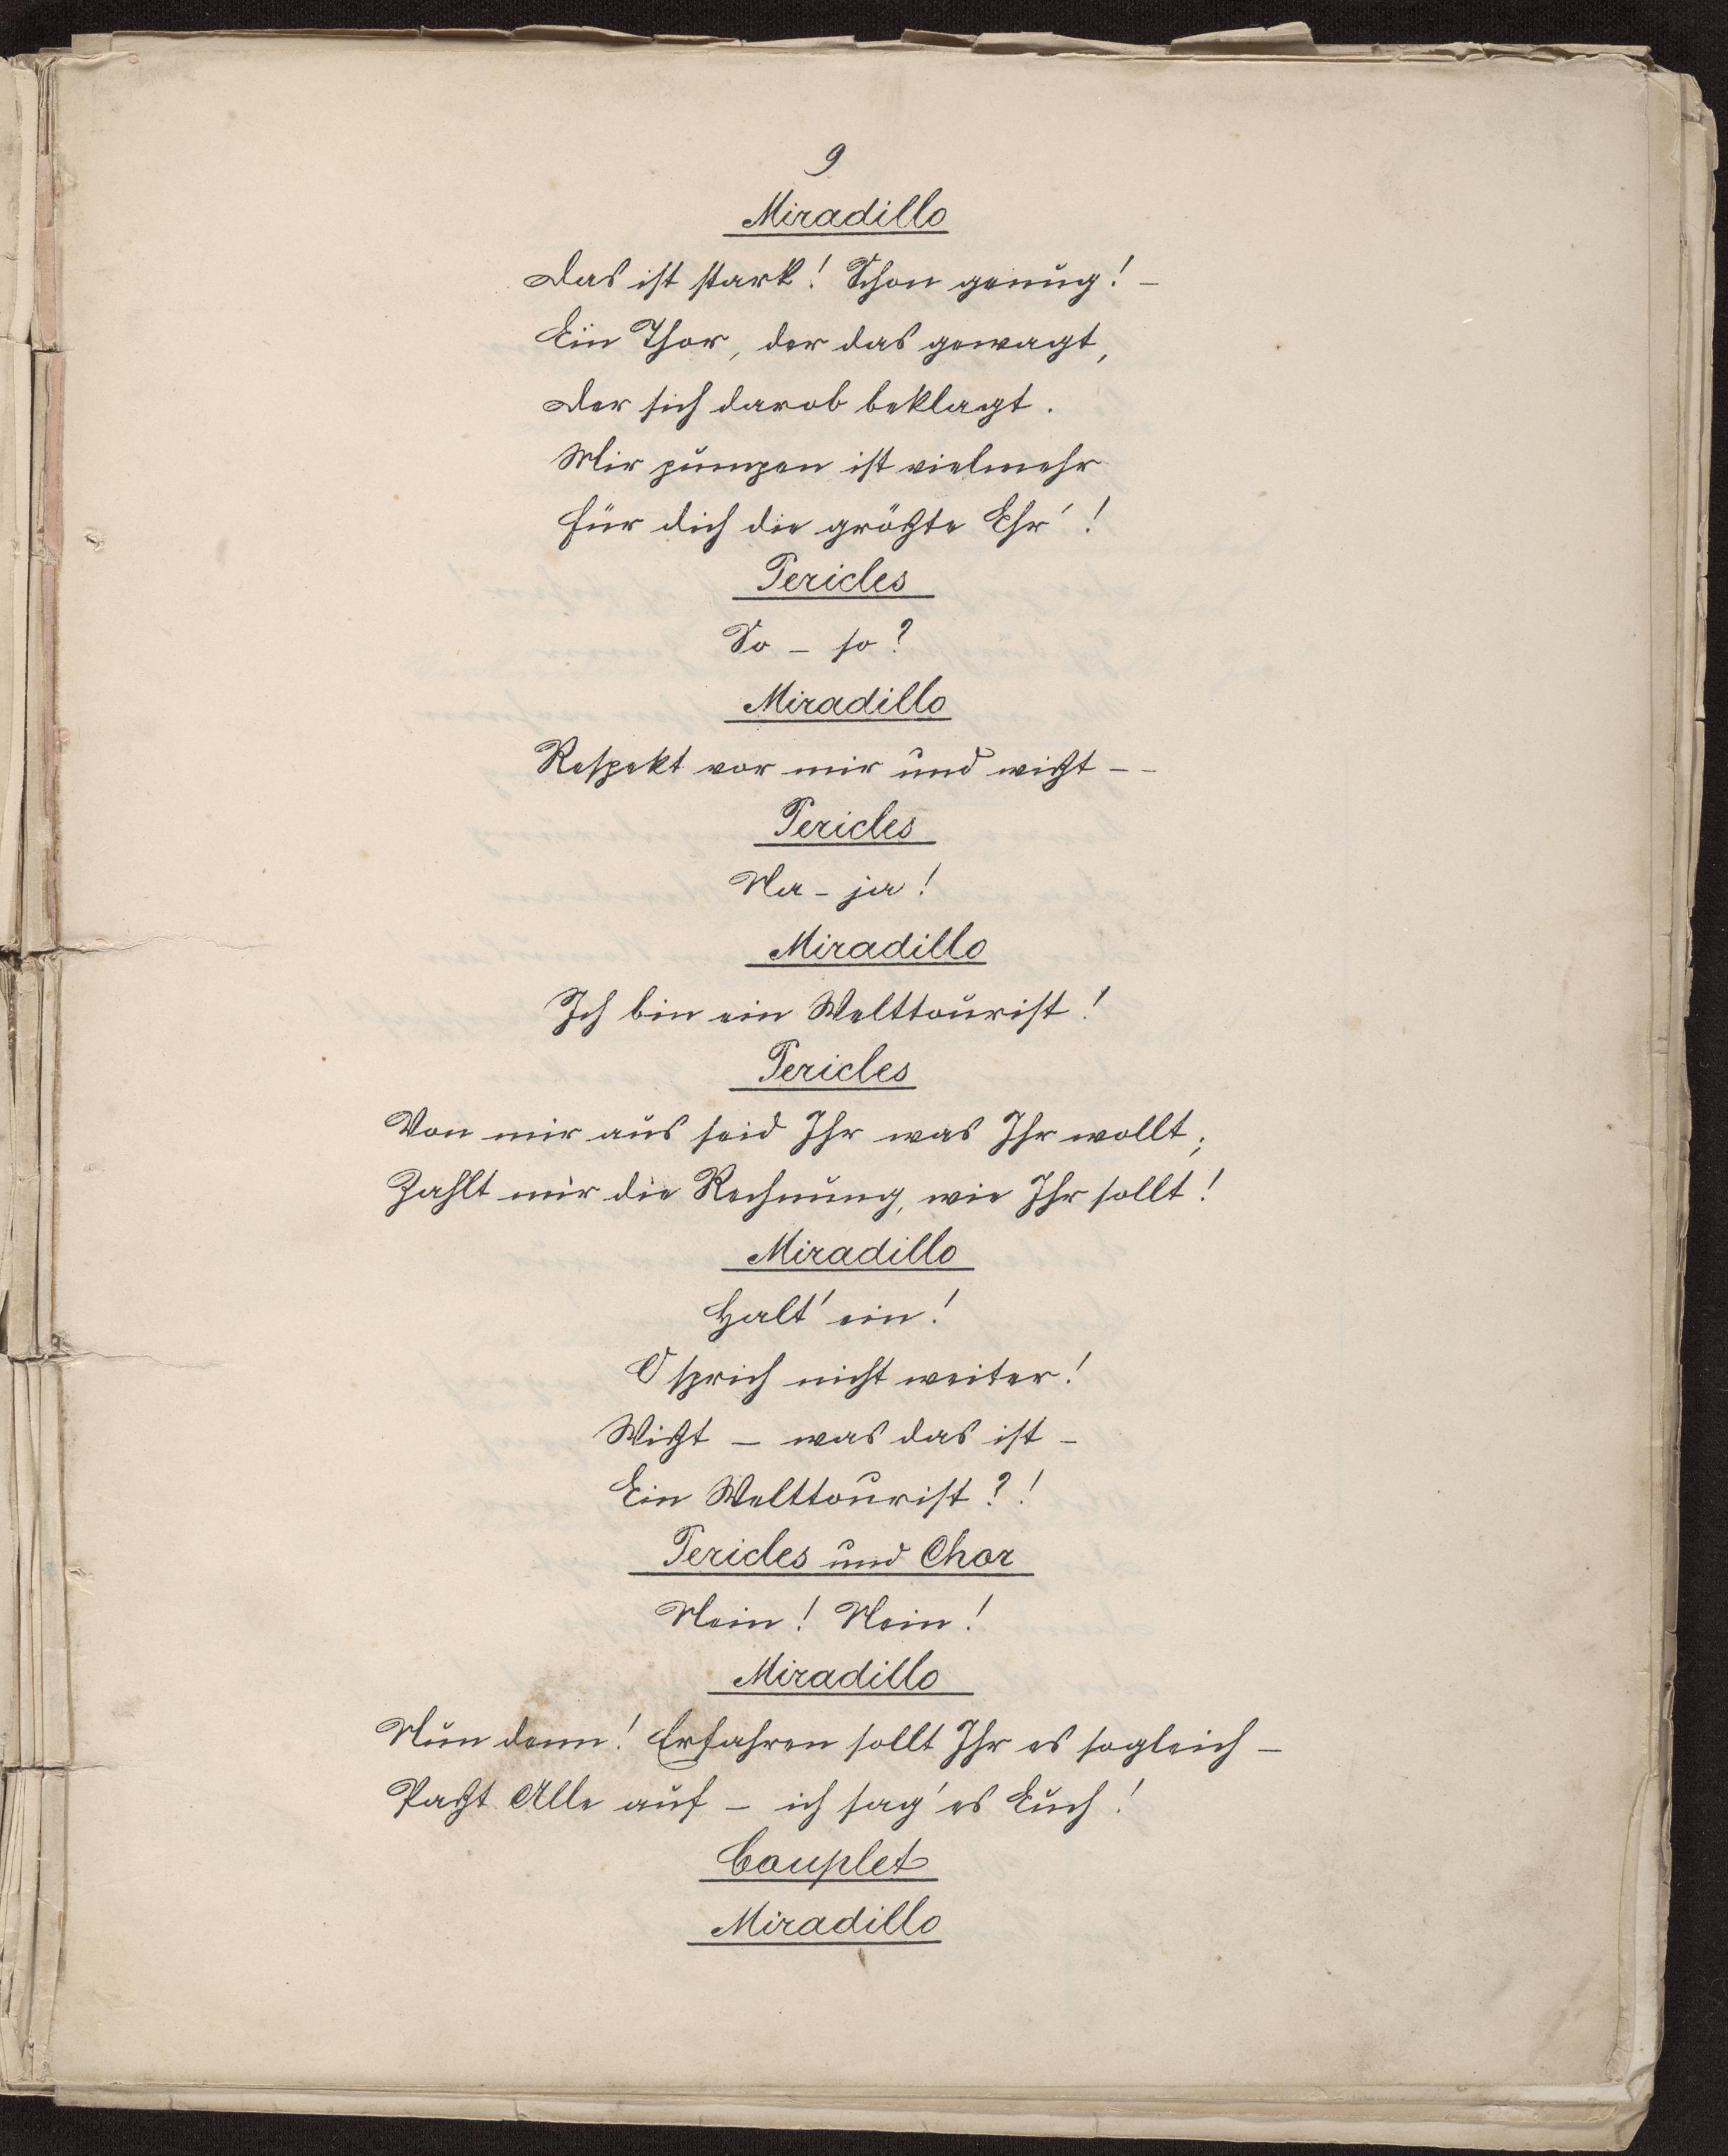 9
Miradillo
Das ist stark! Schon genug! –
Ein Thor, der das gewagt,
Der sich darob beklagt.
Mir pumpen ist vielmehr
für dich die größte Ehr'!
Pericles
So – so?
Miradillo
Respekt vor mir und wißt – –
Pericles
Na – ja!
Miradillo
Ich bin ein Welttourist!
Pericles
Von mir aus seid Ihr was Ihr wollt;
Zahlt mir die Rechnung, wie Ihr sollt!
Miradillo
Halt' ein!
O sprich nicht weiter!
Wißt – was das ist –
Ein Welttourist?!
Pericles und Chor
Nein! Nein!
Miradillo
Nun denn! Erfahren sollt Ihr es sogleich –
Paßt Alle auf – ich sag' es Euch!
Couplet
Miradillo